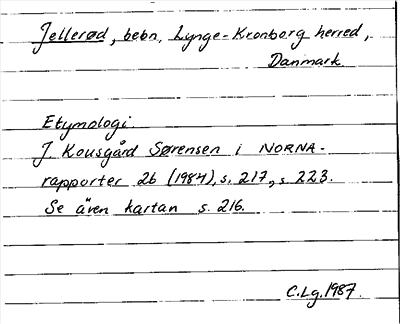 Jellerød, bebn, Lynge-Kronborg herred,
Danmark
Etymologi
J. Kousgård Sørensen i NORNA-
rapporter 26 (1984), s. 217, s. 223.
Se även kartan s. 216.
C.Lg. 1987.